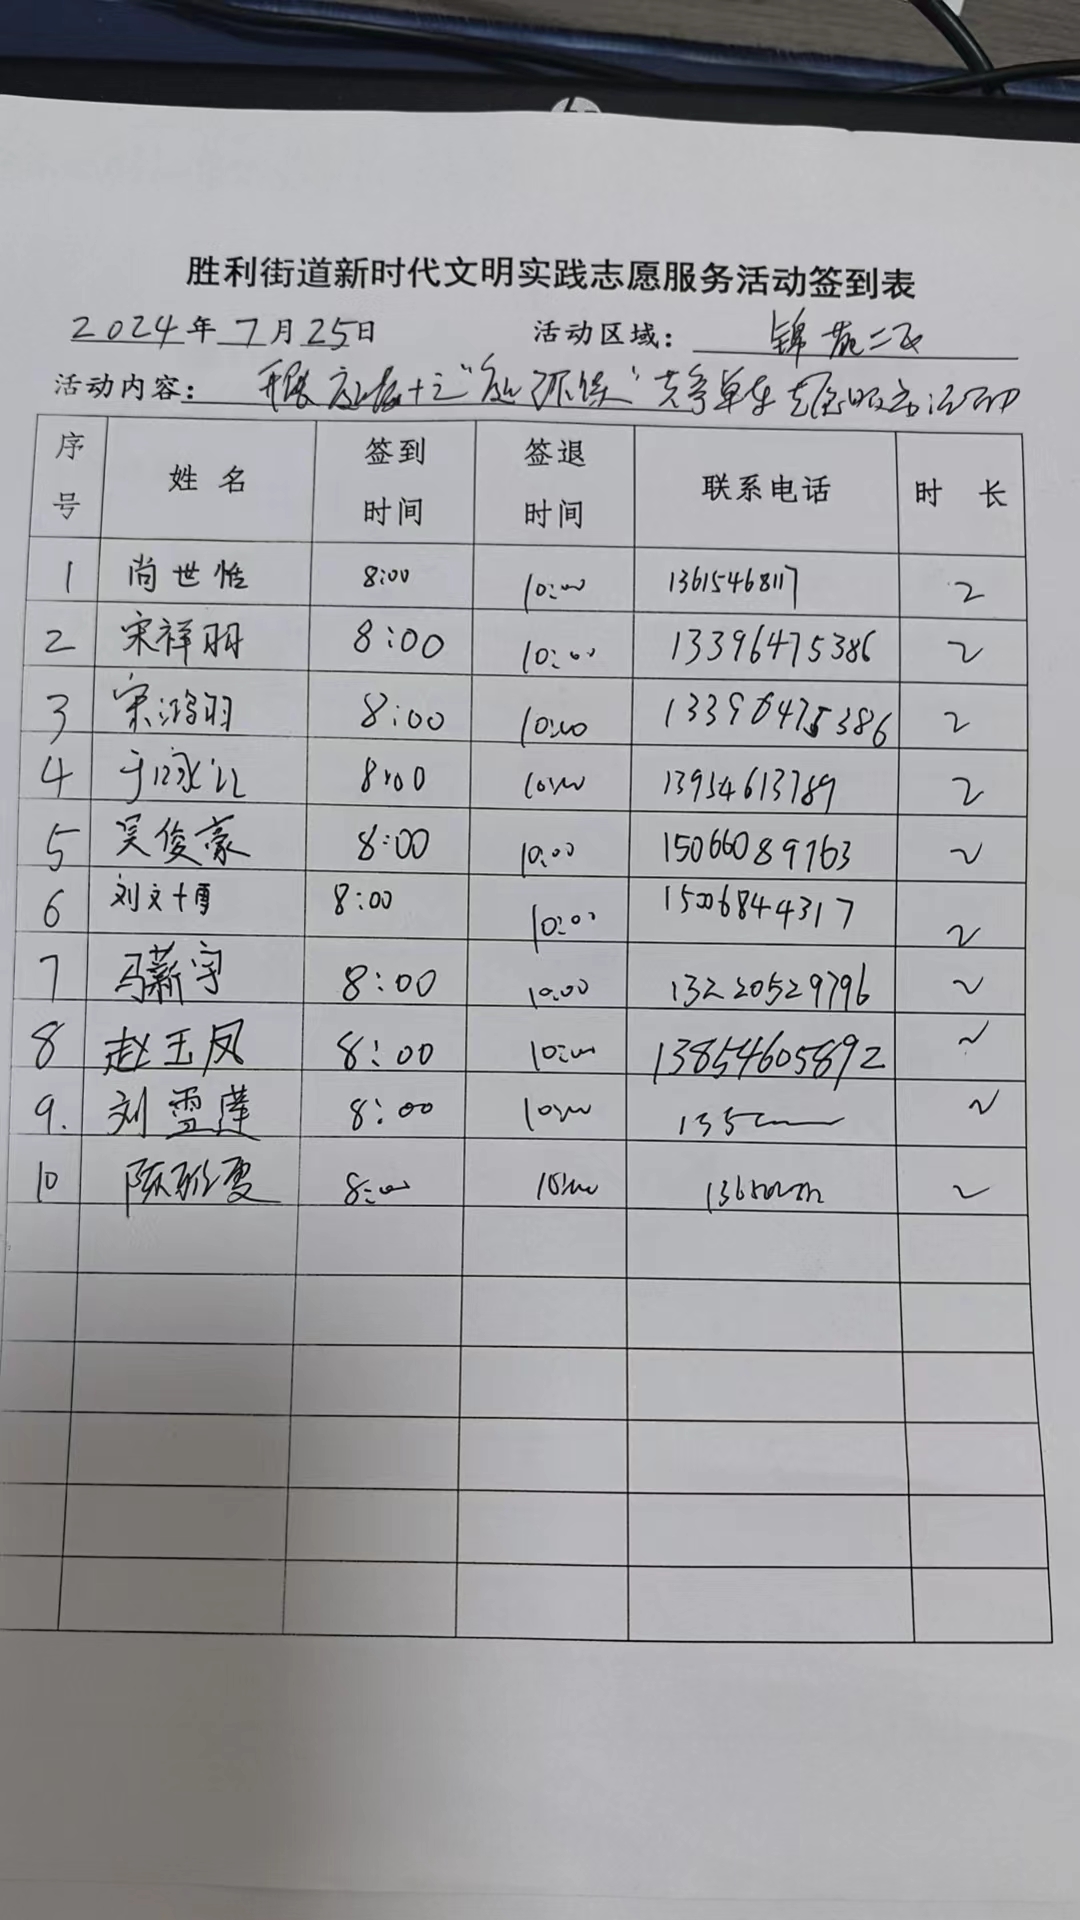 胜利街道新时代文明实践志愿服务活动签到表
2024年7月25日 活动区域: 锦苑二区
活动内容: 开展 共享单车志愿服务活动
序号 姓名 签到时间 签退时间 联系电话 时长
1 尚世恬 8:00 10:00 13615468117 2
2 宋祥羽 8:00 10:00 13396475386 2
3 宋鸿羽 8:00 10:00 13396475386 2
4 8:00 10:00 13954613789 2
5 吴俊豪 8:00 10:00 15066089763 2
6 刘文博 8:00 10:00 15006844317 2
7 马薪宇 8:00 10:00 13220529796 2
8 赵玉凤 8:00 10:00 13854605892 2
9. 刘雪莲 8:00 10:00 135 2
10 陈 8:00 10:00 2